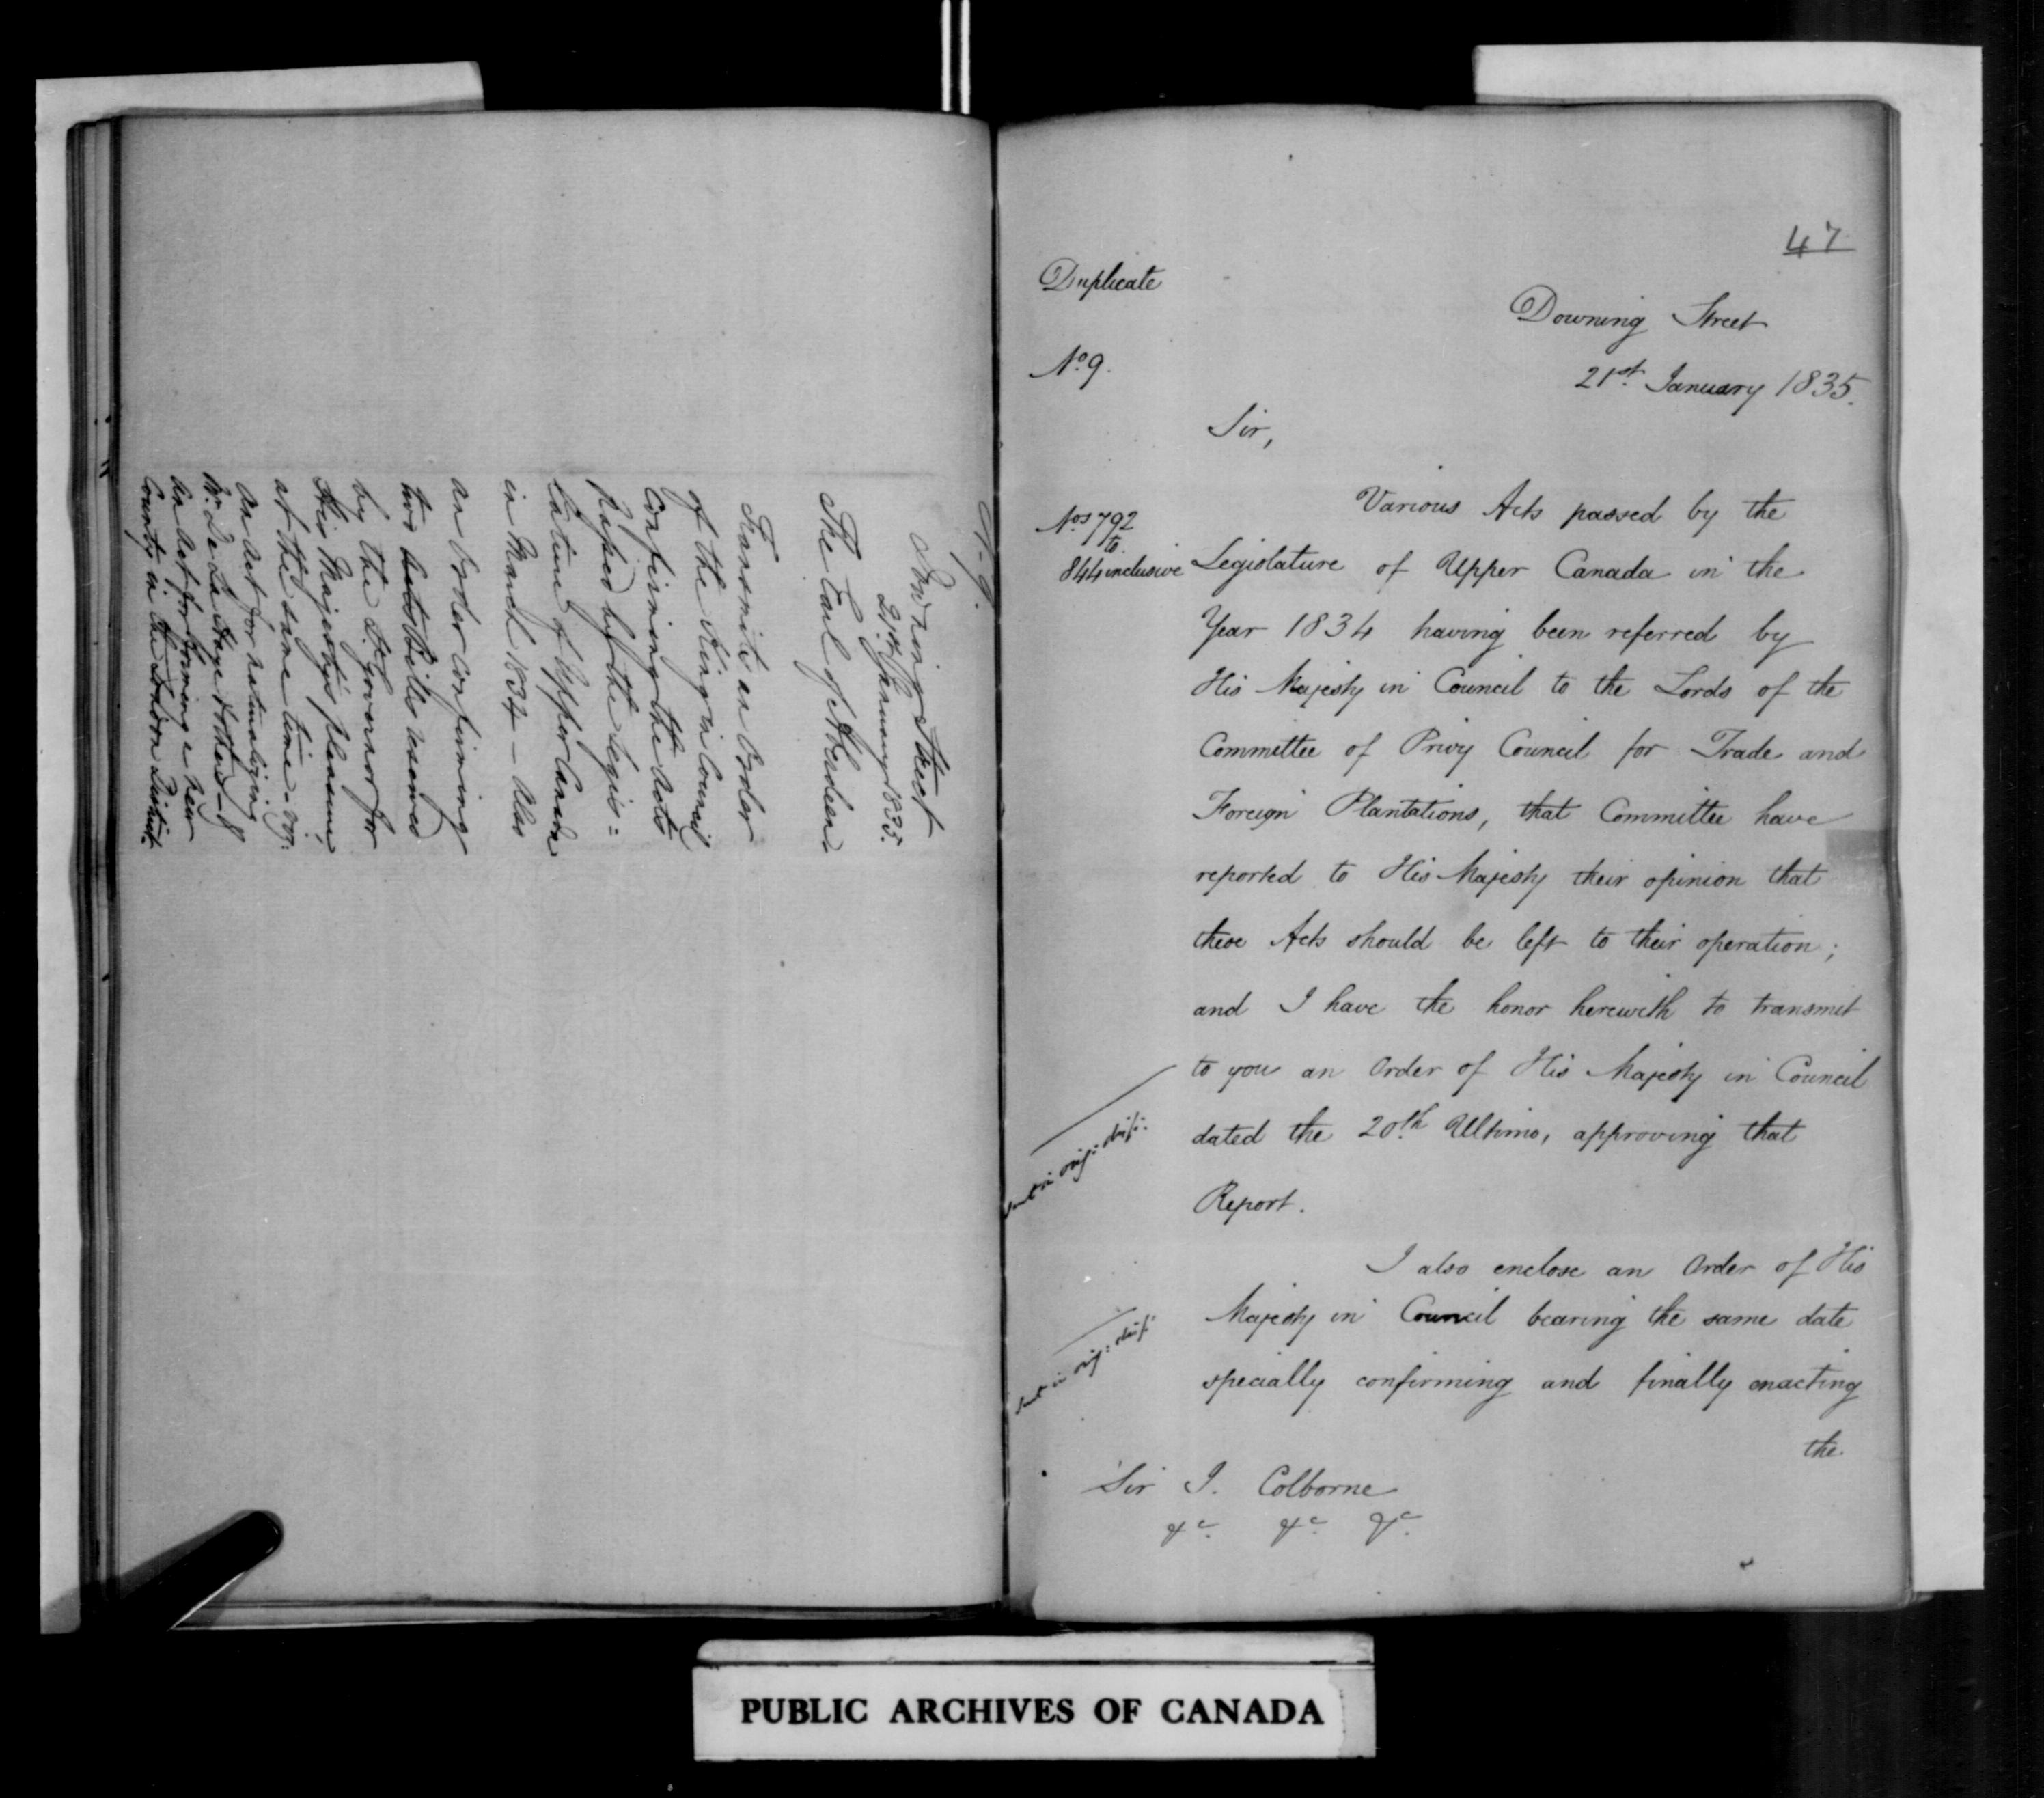 N. 9.
Downing Street
21st January 1835.
The Earl of Aberdeen
Transmits an Order
of the King in Council
Confirming the Acts
passed by the Legis=
lature of Upper Canada
in March 1834 – Also
an Order confirming
two Bills reserved
by the Lt Governor for
His Majesty's pleasure,
at the same time – viz:
An Act for naturalizing
De La Haye & others – &
An Act for forming a new
County in the London District.
47
Duplicate
Downing Street
No. 9.
21st January 1835.
Sir,
Nos 792
to
844 inclusive
Various Acts passed by the
Legislature of Upper Canada in the
Year 1834 having been referred by
His Majesty in Council to the Lords of the
Committee of Privy Council for Trade and
Foreign Plantations, that Committee have
reported to His Majesty their opinion that
these Acts should be left to their operation;
and I have the honor herewith to transmit
to you an Order of His Majesty in Council
dated the 20th Ultimo, approving that
Report.
Sent in orig: disp:
I also enclose an Order of His
Majesty in Council bearing the same date
specially confirming and finally enacting
the
Sent in orig: disp:
Sir J. Colborne
&c. &c. &c.
PUBLIC ARCHIVES OF CANADA